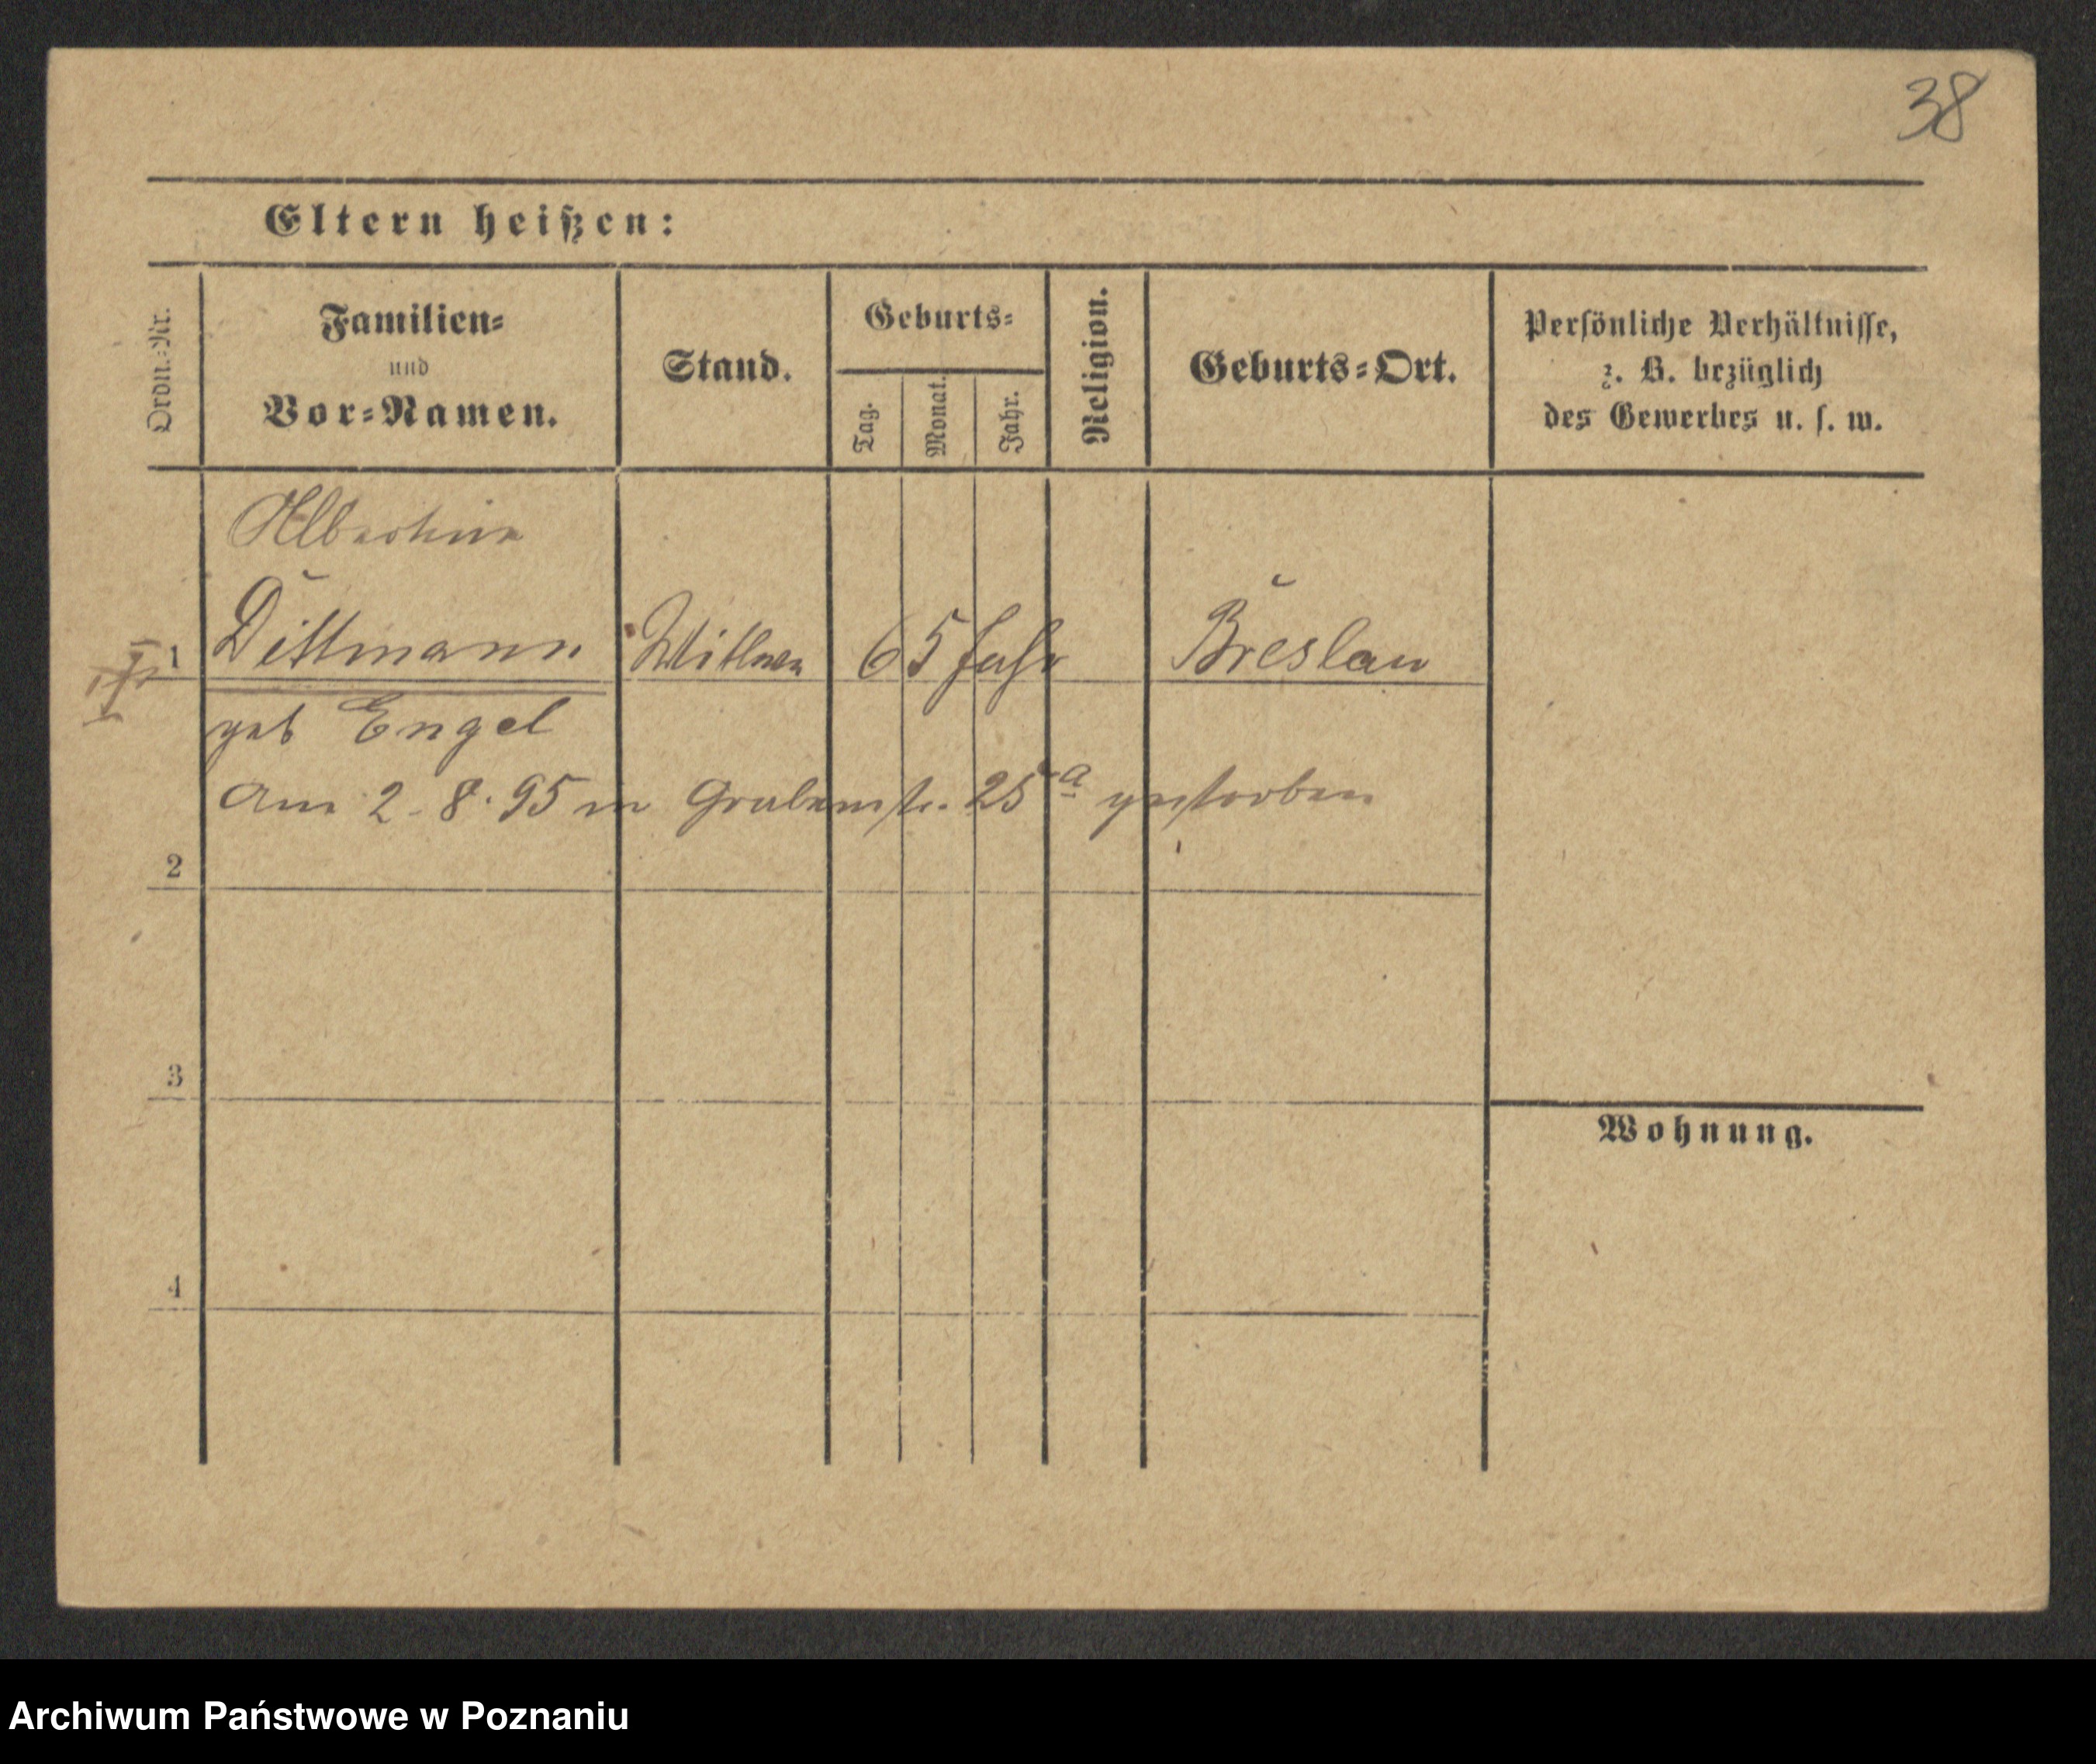 38
Eltern heißen:
Ordn.-Nr.
Familien-
und
Vor-Namen.
Stand.
Geburts-
Tag.
Monat.
Jahr.
Religion.
Geburts-Ort.
Persönliche Verhältnisse,
z. B. bezüglich
des Gewerbes u. s. w.
Albertine
1 Dittmann Wittwe 65 Jahr Breslau
geb Engel
Am 2-8.95 in Grabenstr. 25a gestorben
2
3
Wohnung.
4
Archiwum Państwowe w Poznaniu